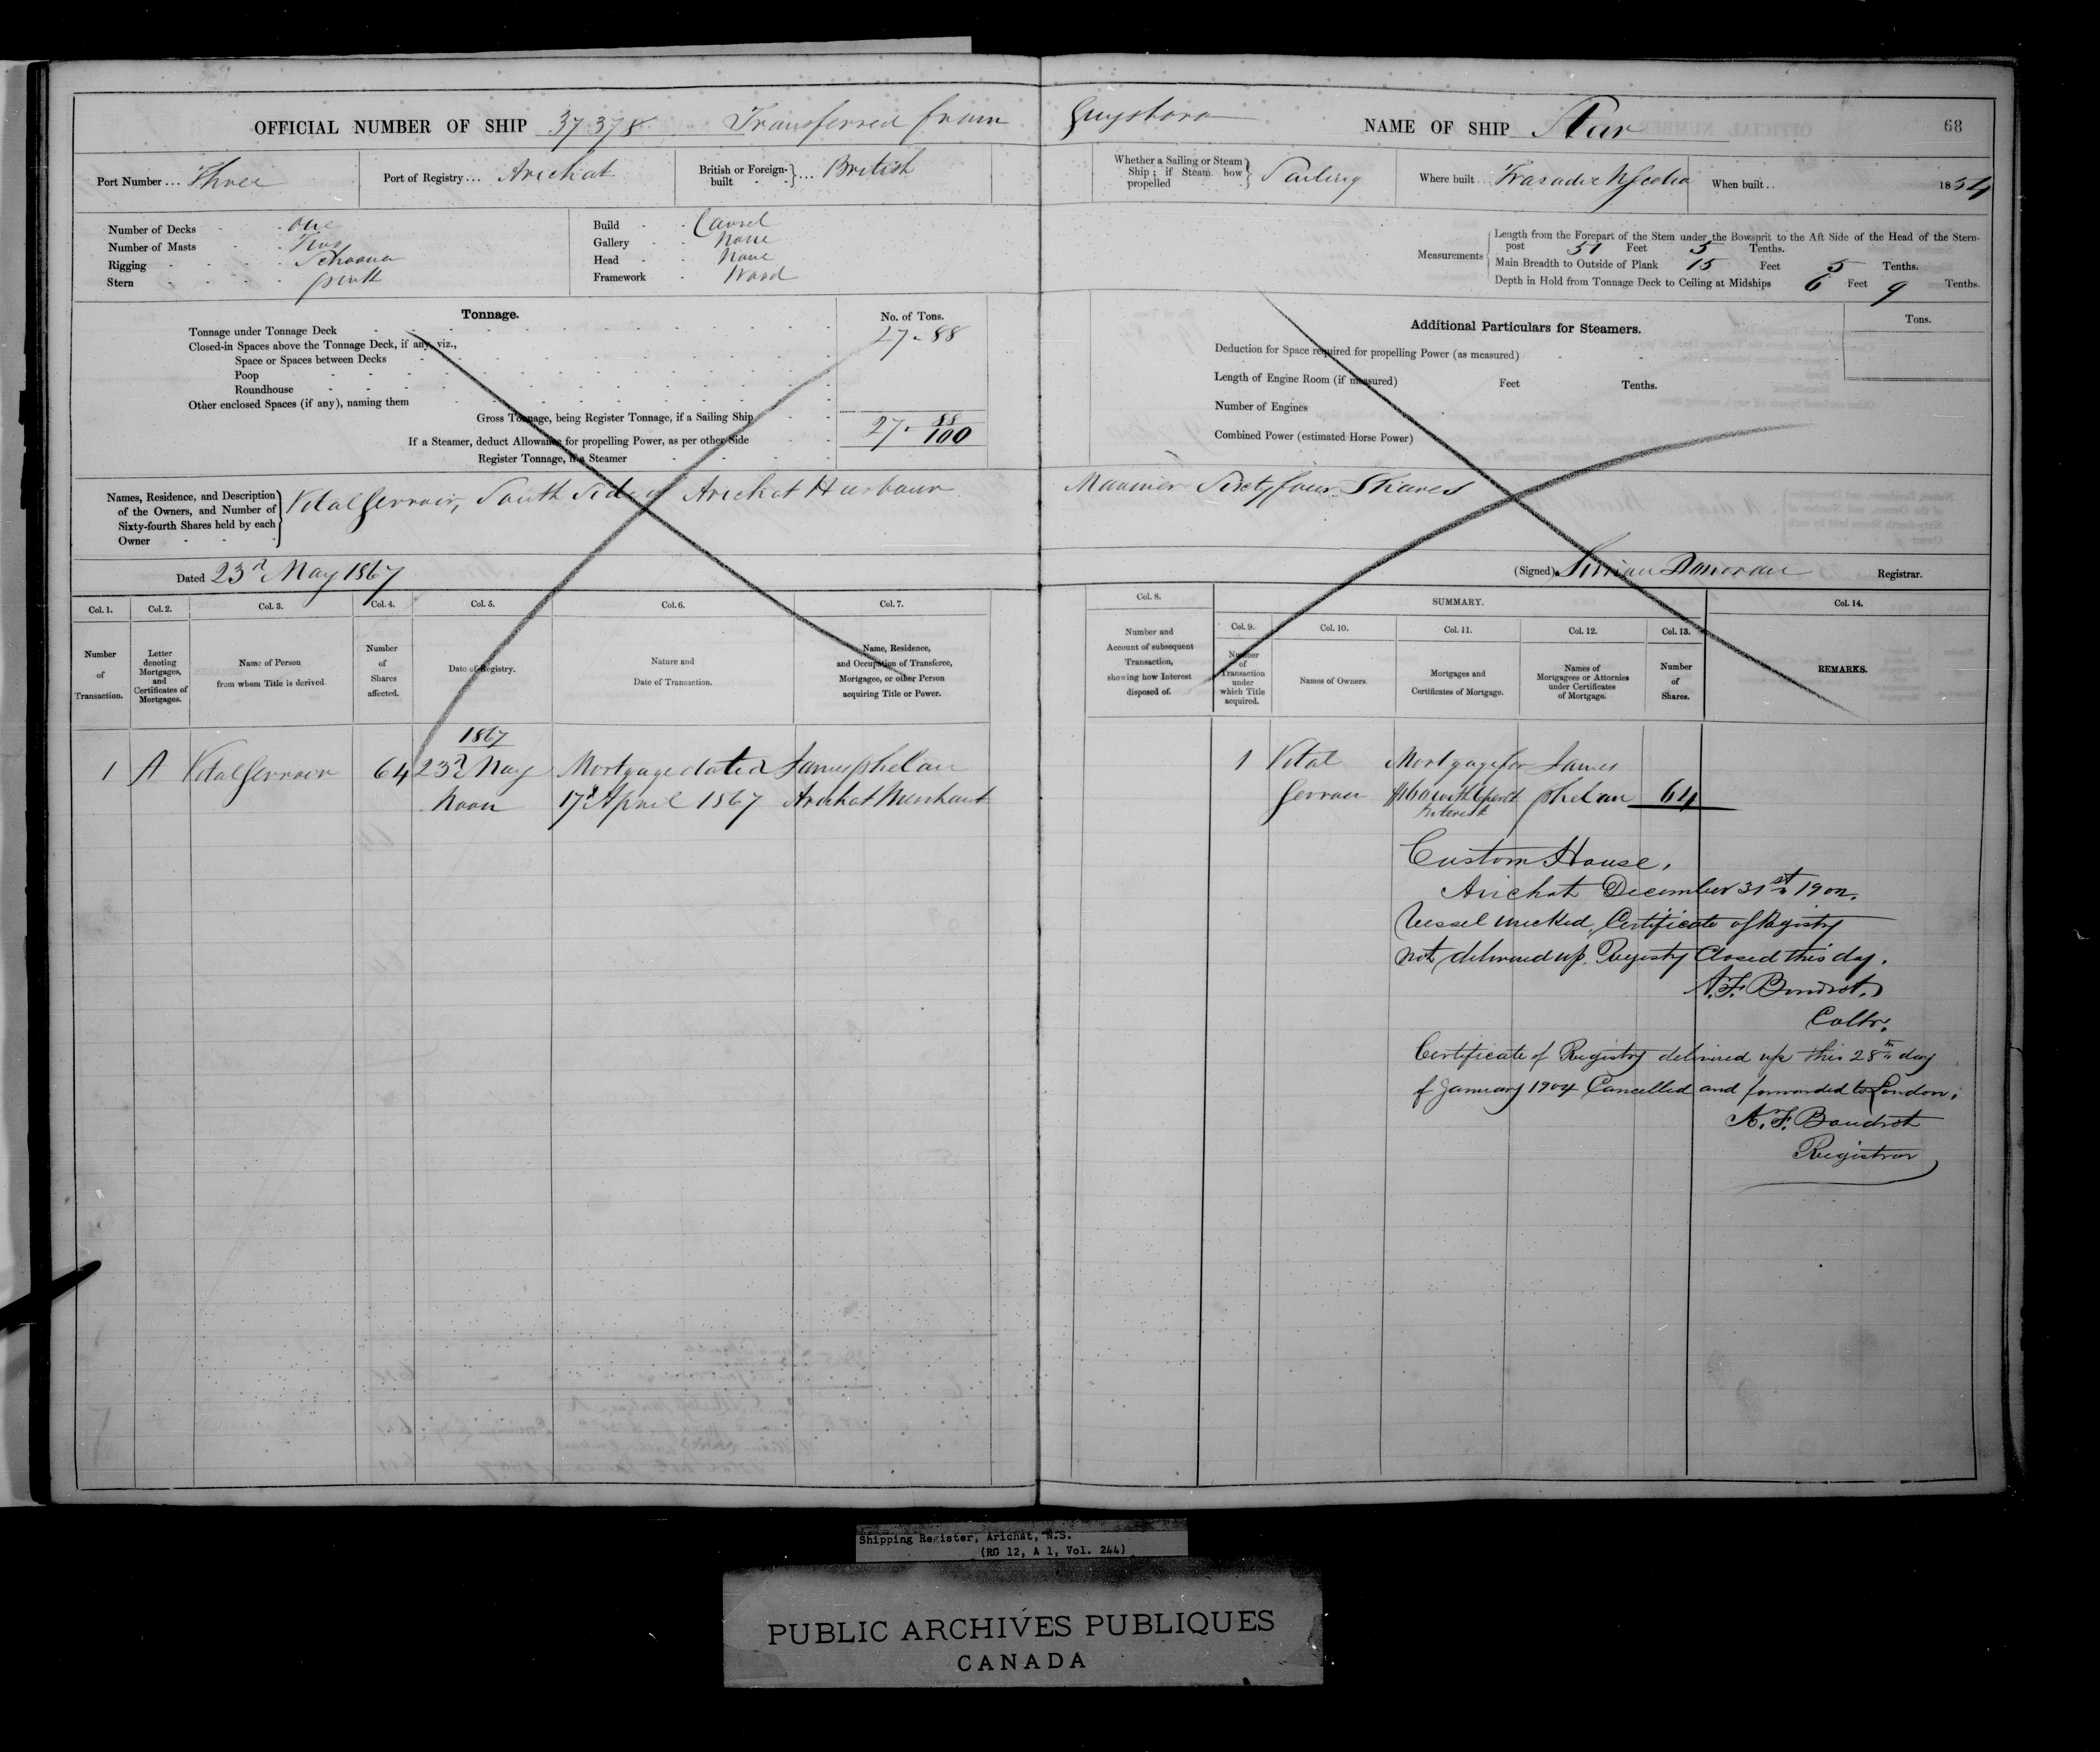 OFFICIAL NUMBER OF SHIP 37.378 Transferred from Guysboro NAME OF SHIP Star 68
Port Number ... Three Port of Registry ... Arichat British or Foreign-built } ... British
Whether a Sailing or Steam Ship; if Steam how propelled } Sailing Where built ... Tracadie N Scotia When built .. 1854
Number of Decks - one
Number of Masts - Two
Rigging - Schooner
Stern - pink
Build - Carvel
Gallery - None
Head - None
Framework - Wood
Measurements { Length from the Forepart of the Stem under the Bowsprit to the Aft Side of the Head of the Stern-
post 51 Feet 5 Tenths.
Main Breadth to Outside of Plank 15 Feet 5 Tenths.
Depth in Hold from Tonnage Deck to Ceiling at Midships 6 Feet 9 Tenths.
Tonnage. No. of Tons.
Tonnage under Tonnage Deck 27.88
Closed-in Spaces above the Tonnage Deck, if any, viz.,
Space or Spaces between Decks
Poop
Roundhouse
Other enclosed Spaces (if any), naming them
Gross Tonnage, being Register Tonnage, if a Sailing Ship 27. 88/100
If a Steamer, deduct Allowance for propelling Power, as per other Side
Register Tonnage, if a Steamer
Additional Particulars for Steamers. Tons.
Deduction for Space required for propelling Power (as measured)
Length of Engine Room (if measured) Feet Tenths.
Number of Engines
Combined Power (estimated Horse Power)
Names, Residence, and Description of the Owners, and Number of Sixty-fourth Shares held by each Owner } Vital Gerroir, South Side of Arichat Harbour Marriner Sixty four Shares
Dated 23d May 1867 (Signed) Donovan Registrar.
Col. 1. Col. 2. Col. 3. Col. 4. Col. 5. Col. 6. Col. 7. Col. 8. SUMMARY. Col. 14.
Col. 9. Col. 10. Col. 11. Col. 12. Col. 13.
Number of Transaction.
Letter denoting Mortgages, and Certificates of Mortgages.
Name of Person from whom Title is derived.
Number of Shares affected.
Date of Registry.
Nature and Date of Transaction.
Name, Residence, and Occupation of Transferee, Mortgagee, or other Person acquiring Title or Power.
Number and Account of subsequent Transaction, showing how Interest disposed of.
Number of Transaction under which Title acquired.
Names of Owners.
Mortgages and Certificates of Mortgage.
Names of Mortgagees or Attornies under Certificates of Mortgage.
Number of Shares.
REMARKS.
1867
1 A Vital Gerroir 64 23d May Mortgage dated James phelan
Noon 17d April 1867 Arichat Merchant
1 Vital Mortgage for James
Gerroir $160 with 6 perct phelan 64
Interest
Custom House,
Arichat December 31st 1902.
Vessel wrecked, Certificate of Registry
not delivered up. Registry Closed this day.
A. F. Boudrot,
Collr.
Certificate of Registry delivered up this 28th day
of January 1904 Cancelled and forwarded to London.
A. F. Boudrot
Registrar
Shipping Register, Arichat, N.S.
(RG 12, A 1, Vol. 244)
PUBLIC ARCHIVES PUBLIQUES
CANADA